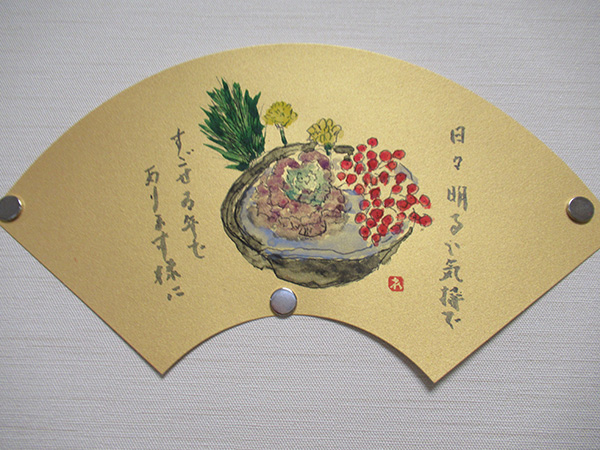 日々明るい気持で
すごせる年で
ありますように